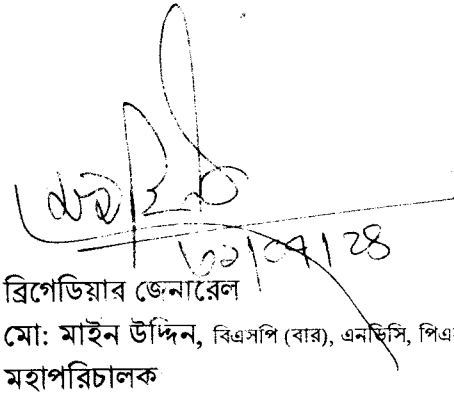 ব্রিগেডিয়ার জেনারেল
মো: মাইন উদ্দিন, বিএসপি (বার), এনডিসি, পিএ
মহাপরিচালক